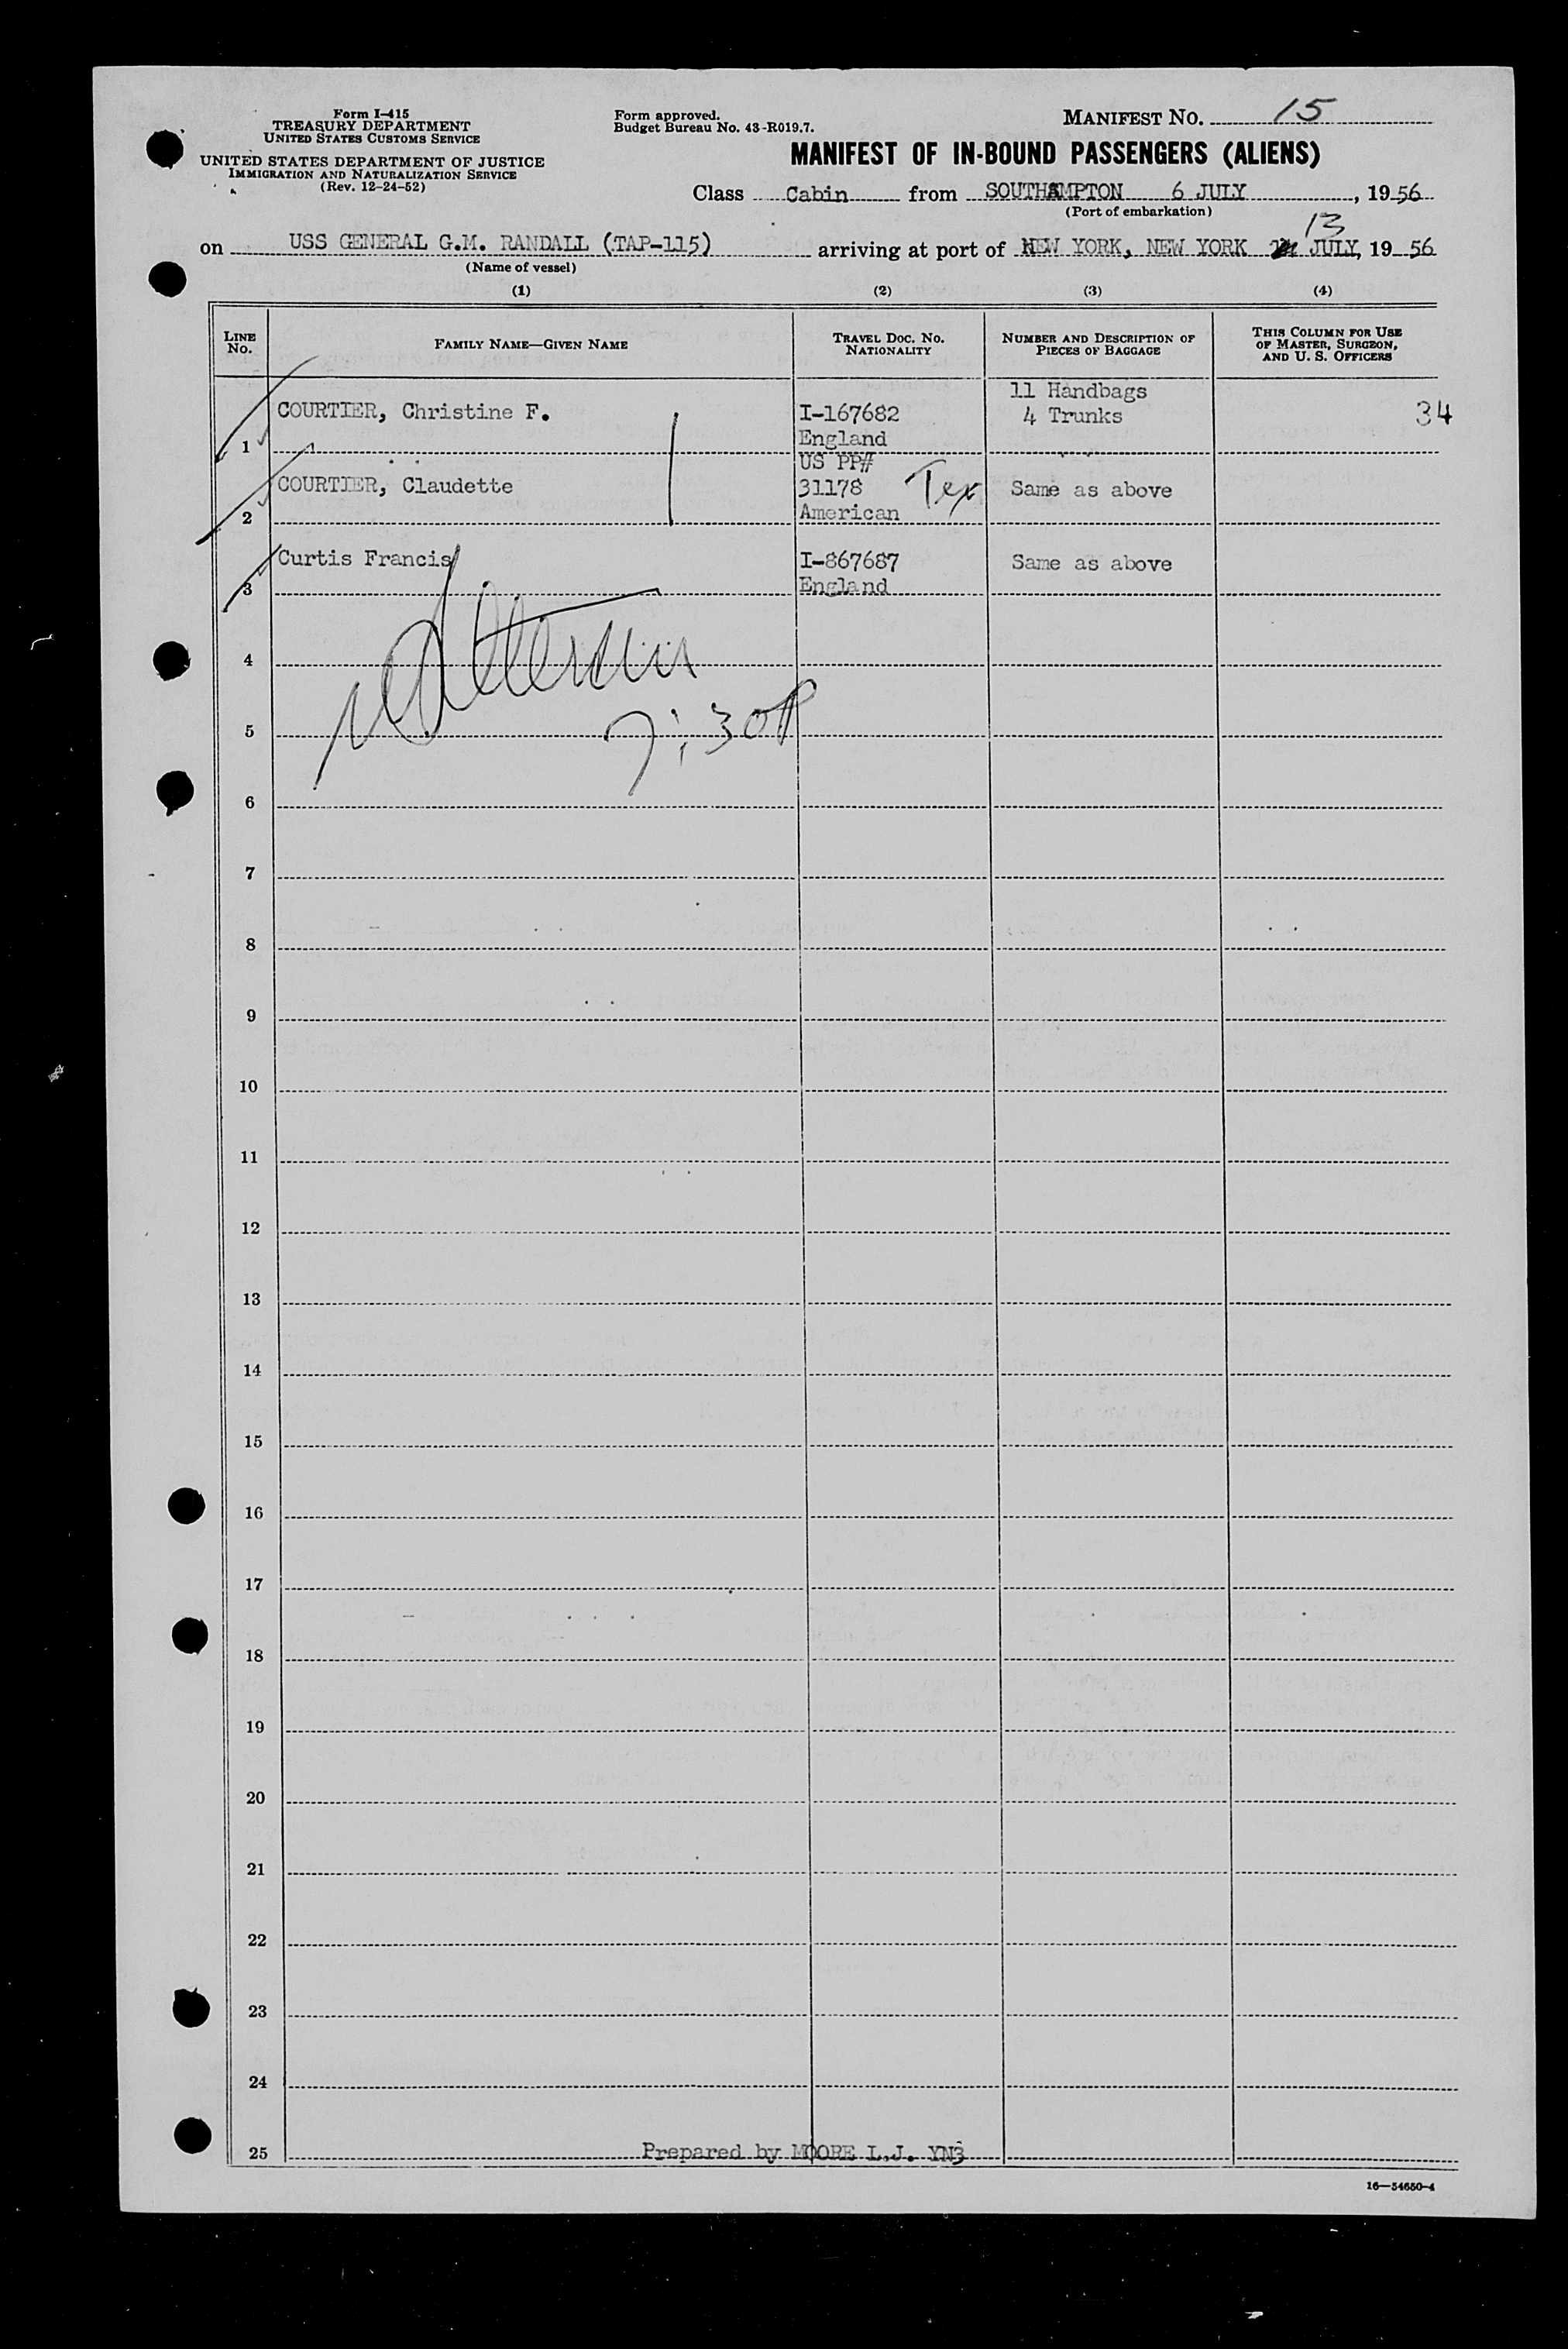 Form I-415
TREASURY DEPARTMENT
UNITED STATES CUSTOMS SERVICE
UNITED STATES DEPARTMENT OF JUSTICE
IMMIGRATION AND NATURALIZATION SERVICE
(Rev. 12-24-52)
Form approved.
Budget Bureau No. 43-R019.7.
MANIFEST NO. 15
MANIFEST OF IN-BOUND PASSENGERS (ALIENS)
Class Cabin from SOUTHAMPTON 6 JULY, 1956
(Port of embarkation)
13
on USS GENERAL G.M. RANDALL (TAP-115) arriving at port of NEW YORK, NEW YORK JULY, 19 56
(Name of vessel)
(1) (2) (3) (4)
LINE NO. FAMILY NAME—GIVEN NAME TRAVEL DOC. NO. NATIONALITY NUMBER AND DESCRIPTION OF PIECES OF BAGGAGE THIS COLUMN FOR USE OF MASTER, SURGEON, AND U. S. OFFICERS
11 Handbags
COURTIER, Christine F. I-167682 4 Trunks 34
1 England
US PP#
COURTIER, Claudette 31178 Tex Same as above
2 American
Curtis Francis I-867687 Same as above
3 England
4
5 7:30P
6
7
8
9
10
11
12
13
14
15
16
17
18
19
20
21
22
23
24
25 Prepared by MOORE L.J. YN3
16—54650-4